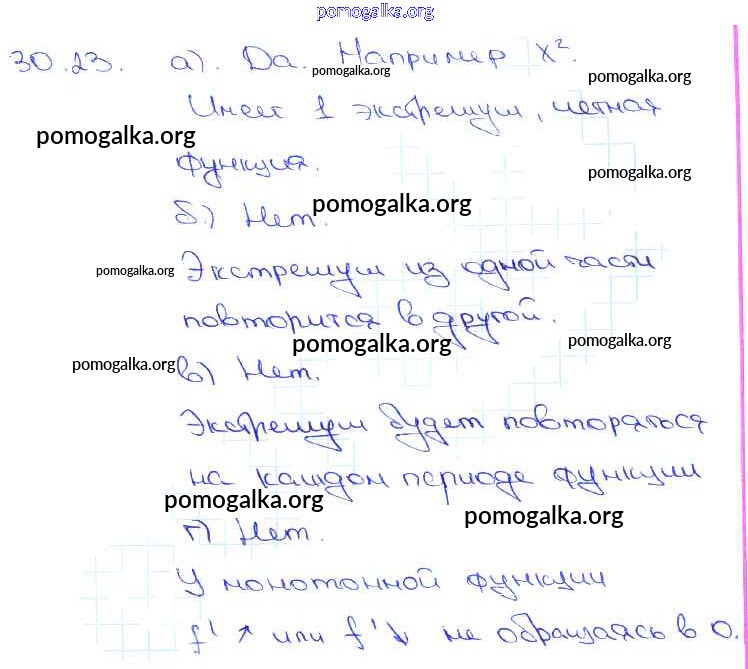 pomogalka.org
30.23. а). Да. Например x².
pomogalka.org
pomogalka.org
Имеет 1 экстремум, четная
pomogalka.org
функция.
pomogalka.org
б.) Нет.
pomogalka.org
pomogalka.org
Экстремум из одной части
повторится в другой.
pomogalka.org
pomogalka.org
pomogalka.org
в) Нет.
Экстремум будет повторяться
на каждом периоде функции
pomogalka.org
pomogalka.org
г) Нет.
У монотонной функции
f' ↗ или f' ↘ не обращаясь в 0.